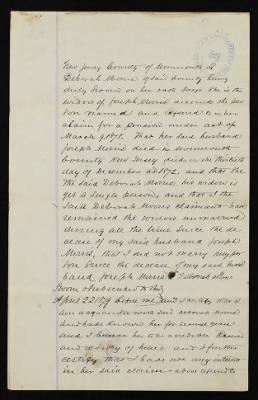 New Jersey County of Monmouth ss
Deborah Morris of said County being
duly sworn on her oath says she is the
widow of Joseph Morris deceased the per
son named and referred to in her
claim for a pension under act of
March 9, 1878. That her said husband
Joseph Morris died in Monmouth
County New Jersey died on the thirtieth
day of December AD 1872, and that she
the said Deborah Morris, his widow is
yet a single person, and that the
said Deborah Morris claimant has
remained the widow unmarried
during all the time since the de
cease of my said husband Joseph
Morris, that I did not marry any per
son since the decease of my said hus
band Joseph Morris Deborah Morris
Sworn & subscribed to this
April 22 1879 before me, and I certify that I
am acquainted with said
and have known her for several years
and I believe her
and worthy of belief and I further
certify that I have not any interest
in her said claim above